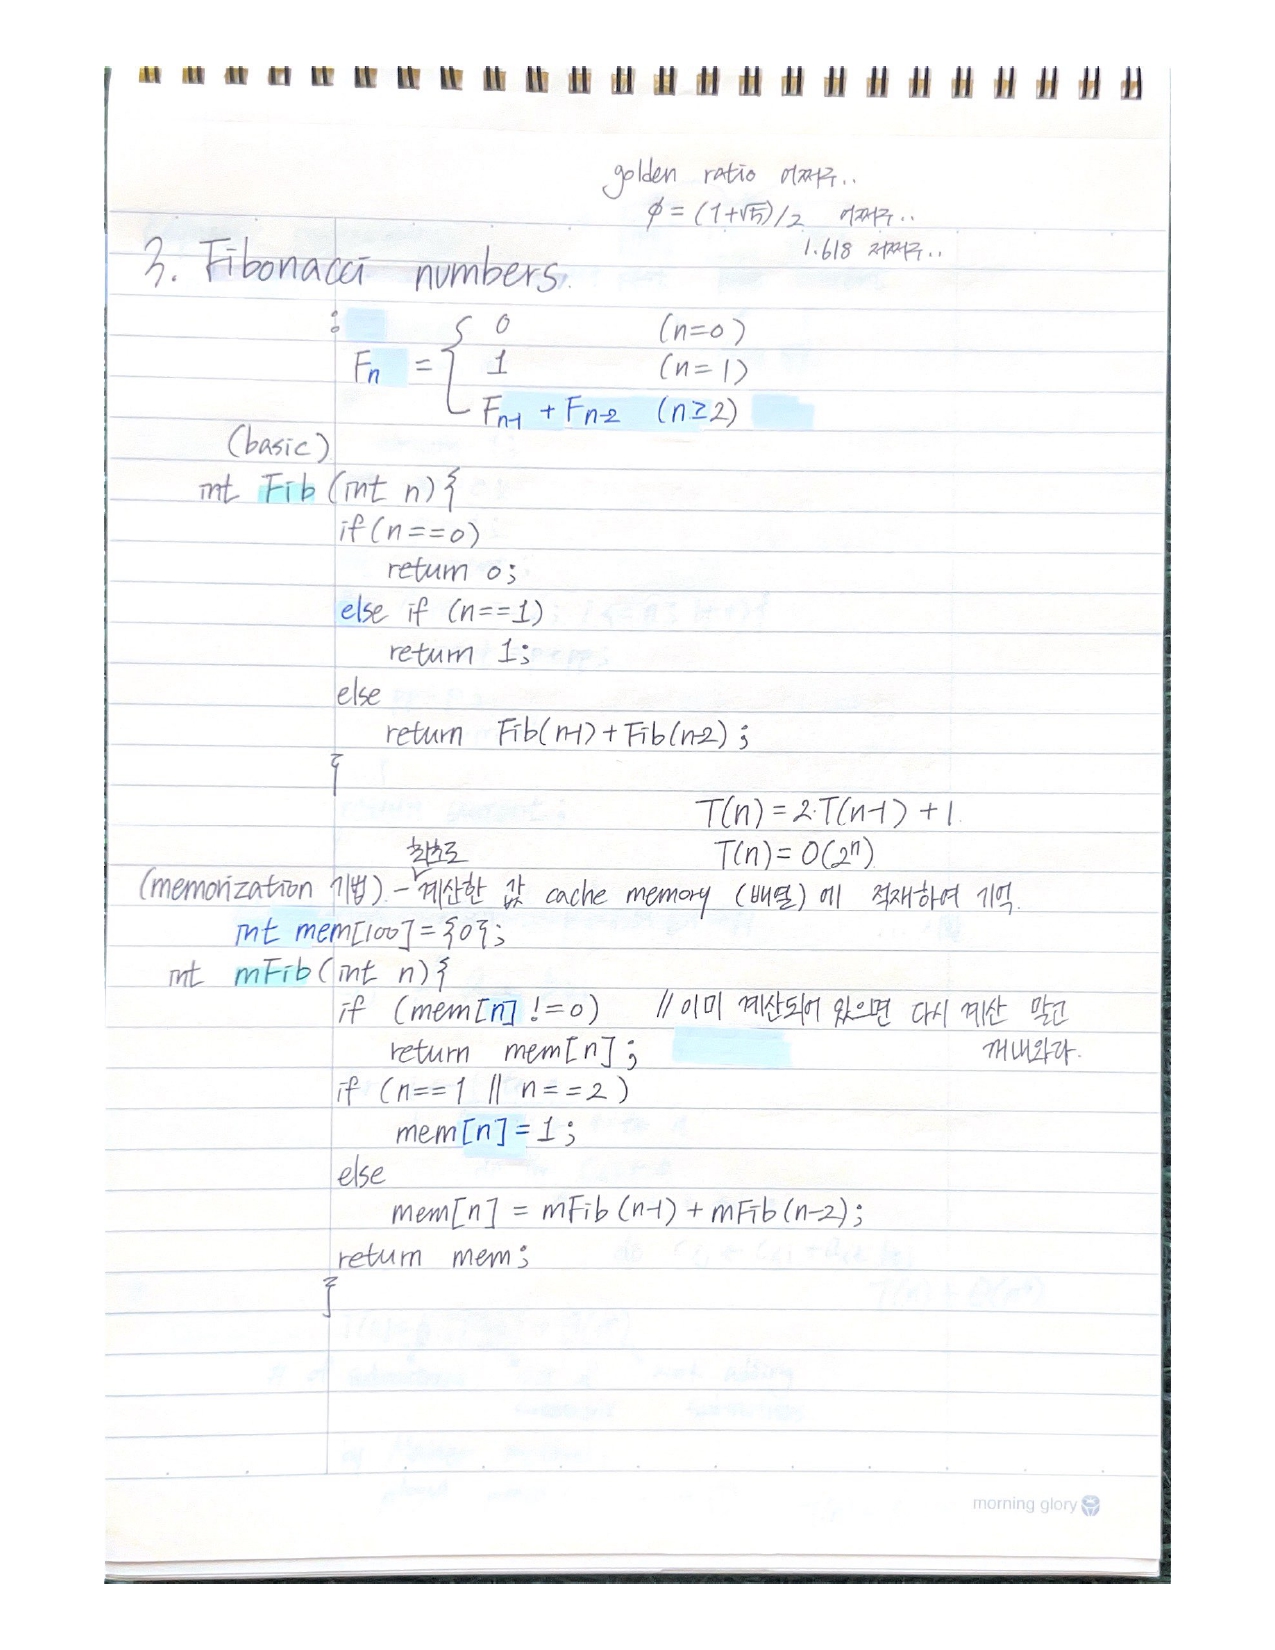 golden ratio 어쩌구..
φ = (1+√5)/2 어쩌구..
1.618 저쩌구..
3. Fibonacci numbers.
:
F_n = { 0 (n=0)
1 (n=1)
F_n-1 + F_n-2 (n≥2)
(basic)
int Fib(int n){
if(n==0)
return 0;
else if (n==1)
return 1;
else
return Fib(n-1)+Fib(n-2);
}
T(n)=2·T(n-1)+1.
T(n)=O(2^n).
최초로
(memorization 기법). - 계산한 값 cache memory (배열)에 적재하여 기억.
int mem[100]={0};
int mFib(int n){
if (mem[n] !=0) // 이미 계산되어 있으면 다시 계산 말고
return mem[n]; 꺼내와라.
if (n==1 || n==2)
mem[n]=1;
else
mem[n] = mFib(n-1)+mFib(n-2);
return mem;
}
morning glory